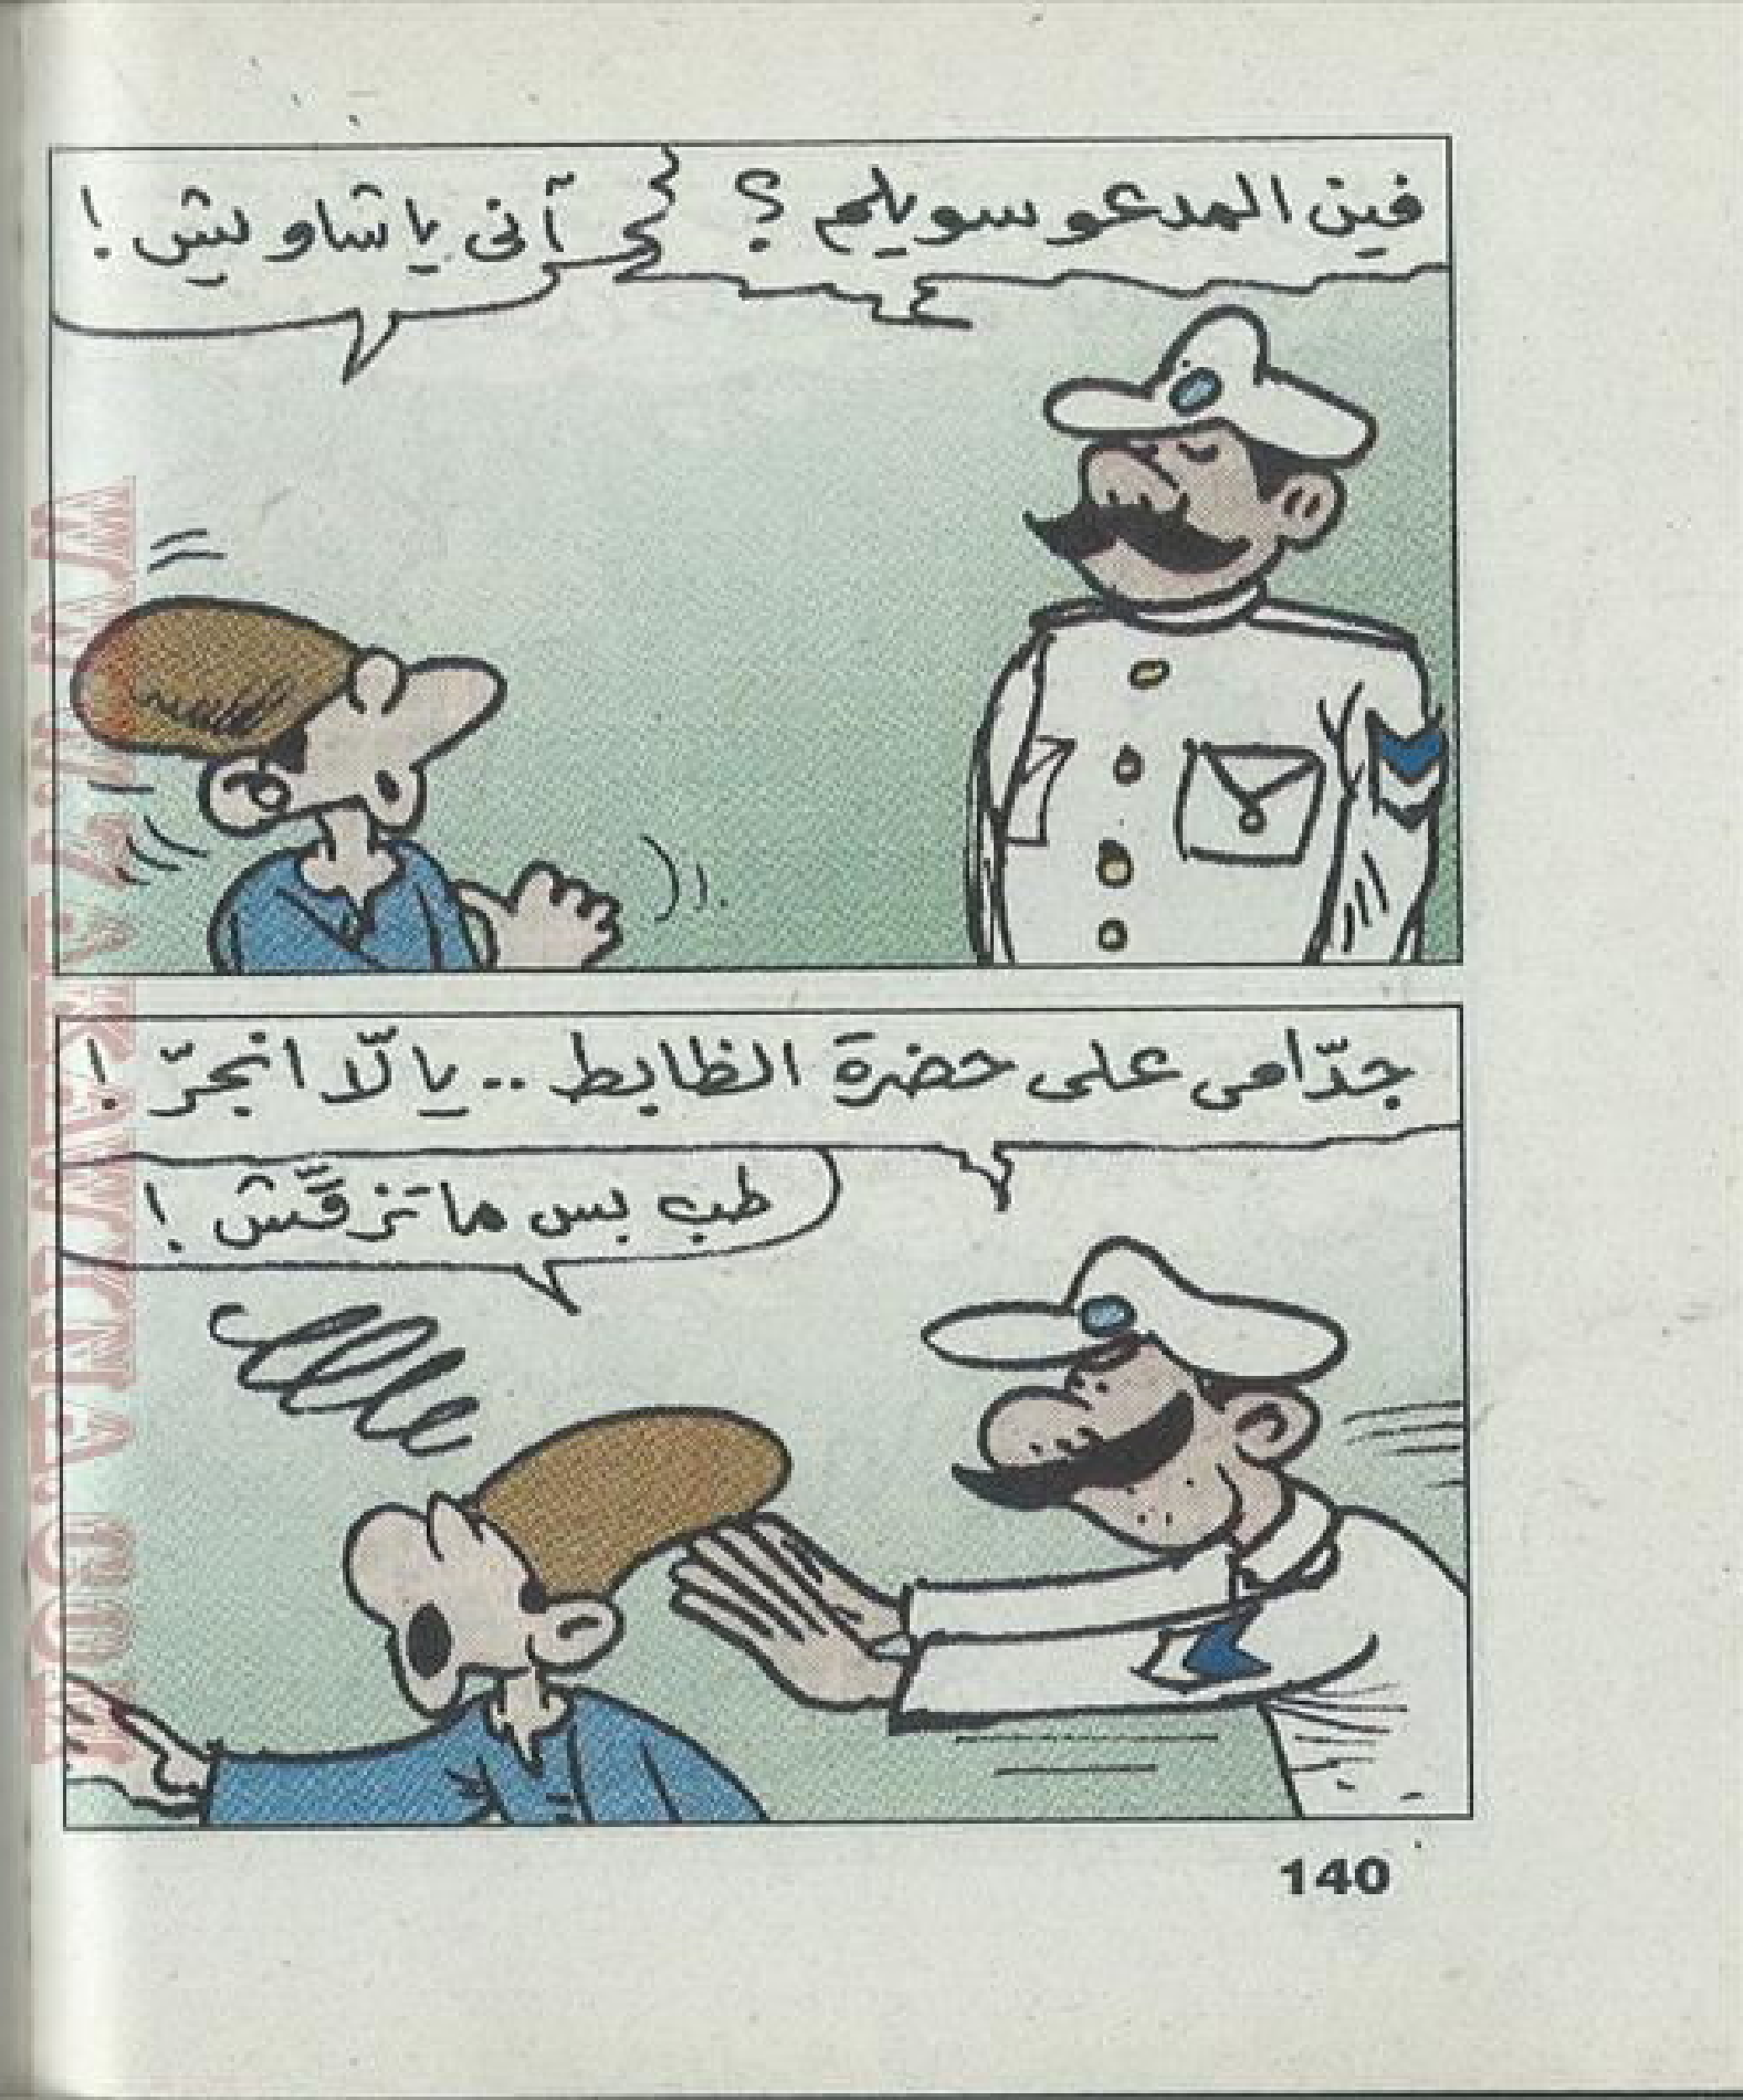 فين المدعو سويلم ؟
آنى يا شاويش !
جدّامى على حضرة الظابط .. يالّا انجرّ !
طب بس ما تزقّش !
140